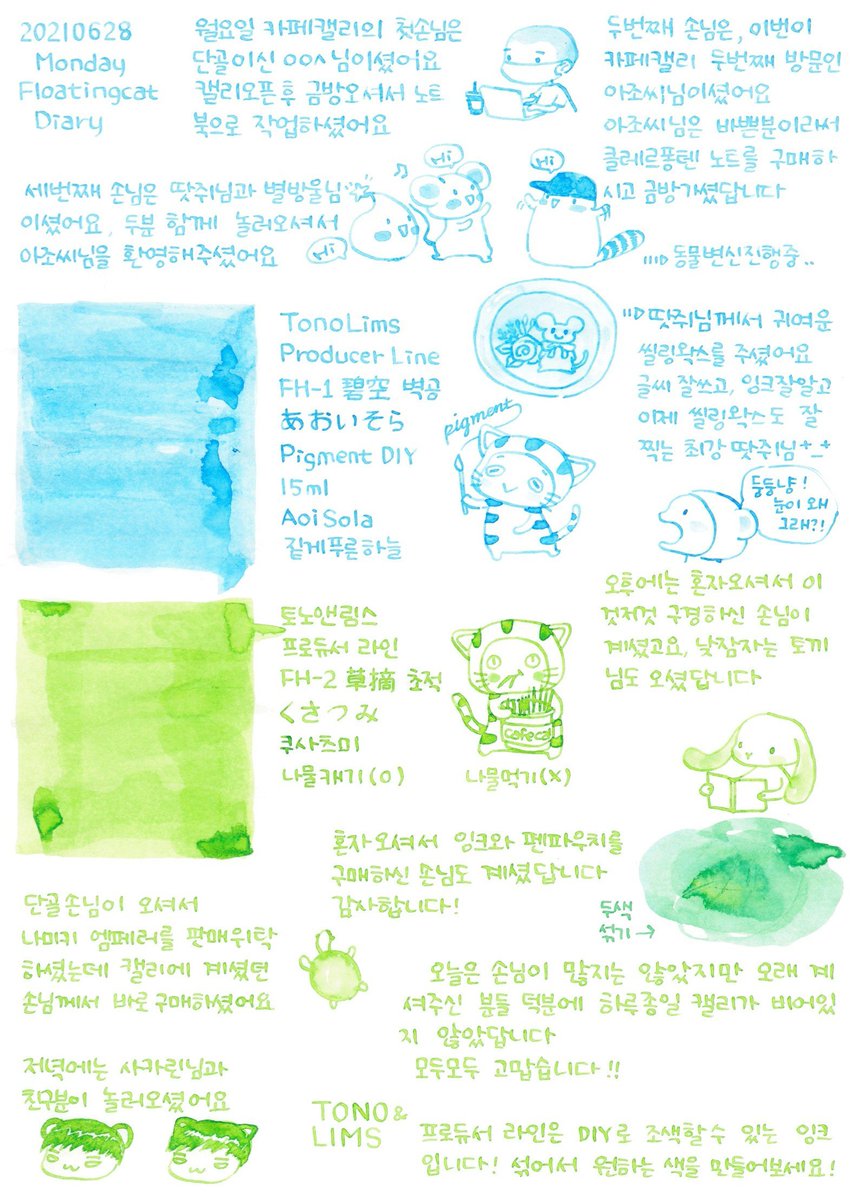 20210628
Monday
Floatingcat
Diary
월요일 카페캘리의 첫손님은
단골이신 ㅇㅇㅅ님이셨어요
캘리오픈후 금방오셔서 노트
북으로 작업하셨어요
두번째 손님은, 이번이
카페캘리 두번째 방문인
아조씨님이셨어요
아조씨님은 바쁜분이라서
클레르퐁텐 노트를 구매하
시고 금방가셨답니다
세번째 손님은 땃쥐님과 별방울님
이셨어요, 두분 함께 놀러오셔서
아조씨님을 환영해주셨어요
Hi
Hi
Hi
동물변신진행중..
TonoLims
Producer Line
FH-1 碧空 벽공
あおいそら
Pigment DIY
15ml
AoiSola
짙게푸른하늘
pigment
땃쥐님께서 귀여운
씰링왁스를 주셨어요
글씨 잘쓰고, 잉크잘알고
이제 씰링왁스도 잘
찍는 최강 땃쥐님+_+
둥둥냥!
눈이 왜
그래?!
토노앤림스
프로듀서 라인
FH-2 草摘 초적
くさつみ
쿠사츠미
나물캐기(O)
Cafecal
나물먹기(X)
오후에는 혼자오셔서 이
것저것 구경하신 손님이
계셨고요, 낮잠자는 토끼
님도 오셨답니다
혼자오셔서 잉크와 펜파우치를
구매하신 손님도 계셨답니다
감사합니다!
두색
섞기→
단골손님이 오셔서
나미키 엠페러를 판매위탁
하셨는데 캘리에 계셨던
손님께서 바로구매하셨어요
오늘은 손님이 많지는 않았지만 오래 계
셔주신 분들 덕분에 하루종일 캘리가 비어있
지 않았답니다
모두모두 고맙습니다!!
저녁에는 사카린님과
친구분이 놀러오셨어요
TONO&
LIMS
프로듀서 라인은 DIY로 조색할수 있는 잉크
입니다! 섞어서 원하는 색을 만들어보세요!